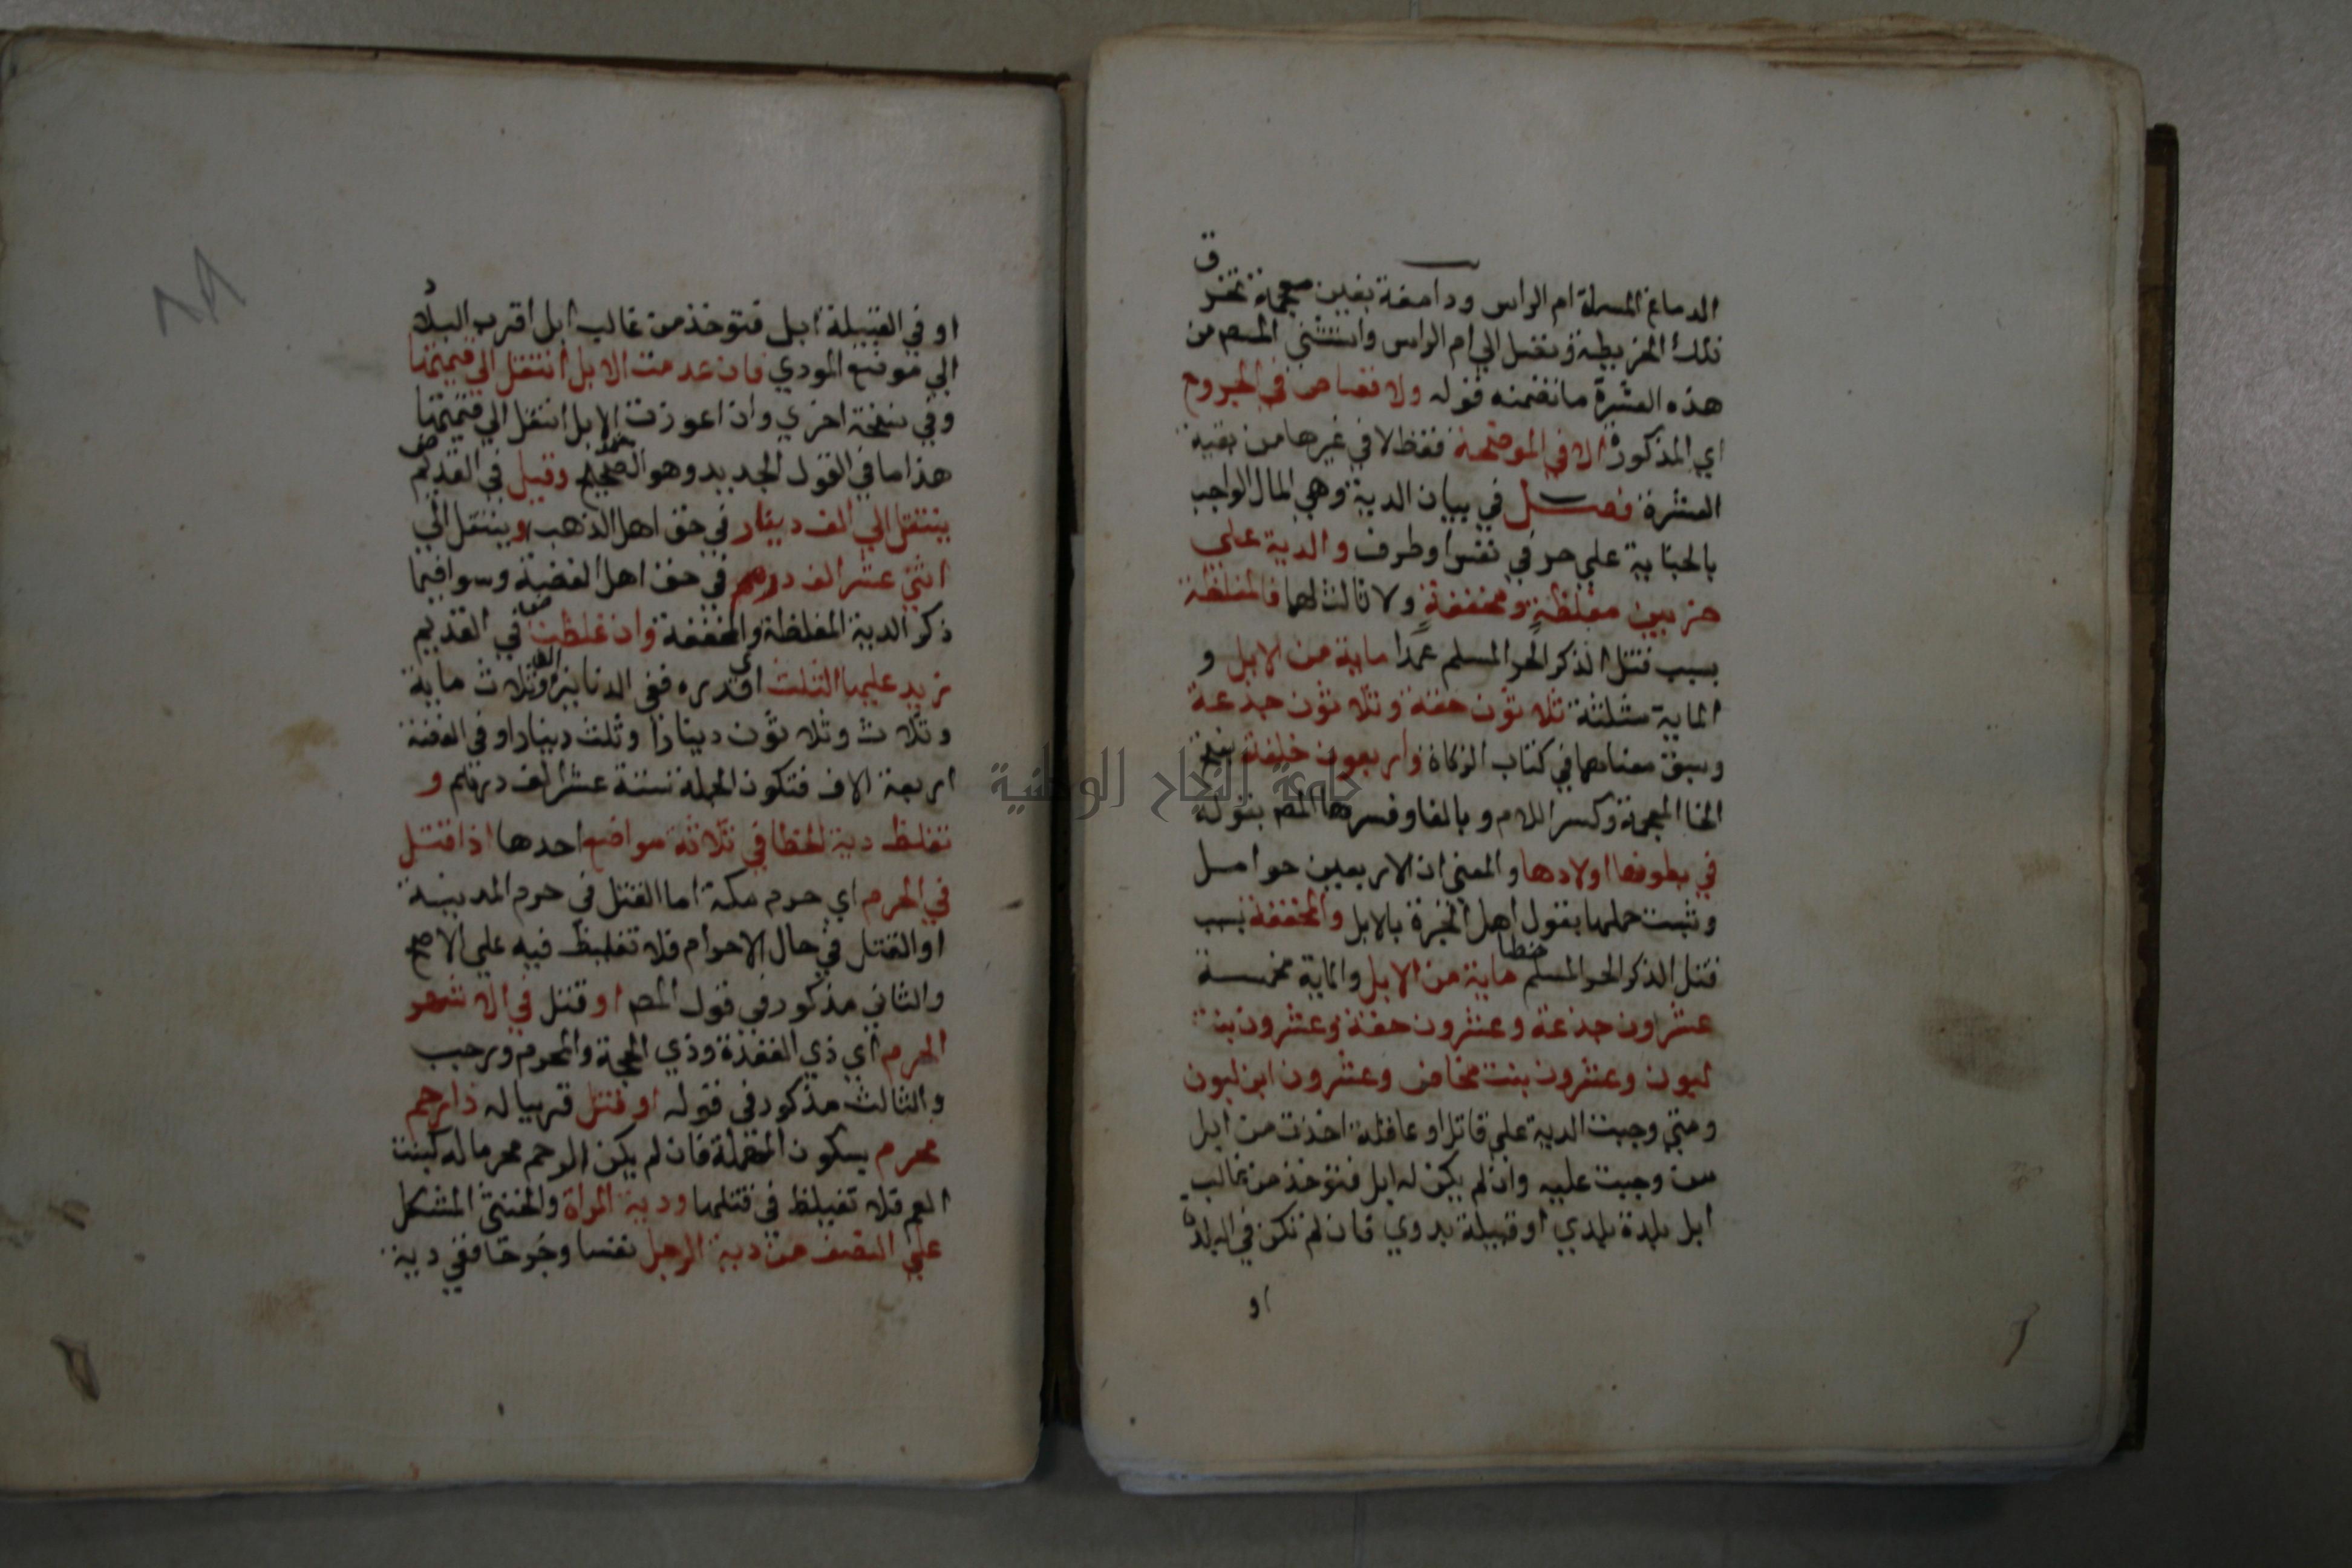 الدماغ المسماة ام الراس ودامغة بغين معجمة تخرق
تلك الخريطة وتصل الي ام الراس واستثني المصم من
هذه العشرة ما تضمنه قوله ولا قصاص في الجروح
اي المذكورة الا في الموضحة فقط لا في غيرها من بقية
العشرة فصل في بيان الدية وهي المال الواجب
بالجناية علي حر في نفس او طرف والدية علي
ضربين مغلظة ومخففة ولا ثالث لهما فالمغلظة
بسبب قتل الذكر الحر المسلم عمدا ماية من الابل و
الماية مثلثة ثلاثون حقة وثلاثون جذعة
وسبق معناهما في كتاب الزكاة واربعون خلفة بفتح
الخا المعجمة وكسر اللام وبالفا وفسرها المصم بقوله
في بطونها اولادها والمعني ان الاربعين حوامل
وثبت حملها بقول اهل الخبرة بالابل والمخففة بسبب
قتل الذكر الحر المسلم خطا ماية من الابل والماية مخمسة
عشرون جذعة وعشرون حقة وعشرون بنت
لبون وعشرون بنت مخاض وعشرون ابن لبون
ومتي وجبت الدية علي قاتل او عاقلة اخذت من ابل
من وجبت عليه وان لم يكن له ابل فتوخذ من غالب
ابل بلدة بلدي او قبيلة بدوي فان لم تكن في البلدة
او
او في القبيلة ابل فتوخذ من غالب ابل اقرب البلاد
الي موضع المودي فان عدمت الابل انتقل الي قيمتها
وفي نسخة اخري وان اعوزت الابل انتقل الي قيمتها
هذا ما في القول الجديد وهو الصحيح وقيل في القديم
ينتقل الي الف دينار في حق اهل الذهب وينتقل الي
اثني عشر الف درهم في حق اهل الفضة وسوا فيما
ذكر الدية المغلظة والمخففة وان غلظت في القديم
زيد عليها الثلث اي قدره ففي الدنانير الف وثلاث ماية
وثلاث وثلاثون دينارا وثلث دينار او في الفضة
اربعة الاف فتكون الجملة ستة عشر الف درهم و
تغلظ دية الخطا في ثلاثة مواضع احدها اذا قتل
في الحرم اي حرم مكة اما القتل في حرم المدينة
او القتل في حال الاحرام فلا تغليظ فيه علي الاصح
والثاني مذكور في قول المصم او قتل في الاشهر
الحرم اي ذي القعدة وذي الحجة والمحرم ورجب
والثالث مذكور في قوله او قتل قريبا له ذا رحم
محرم بسكون المهملة فان لم يكن الرحم محرما له كبنت
العم فلا تغيلظ في قتلها ودية المراة والخنثي المشكل
علي النصف من دية الرجل نفسا وجرحا ففي دية
٨٩
جامعة النجاح الوطنية